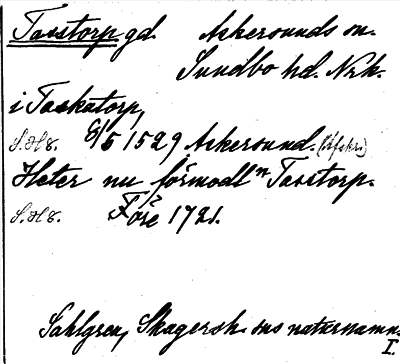 Tasstorp gd. Askersunds sn.
Sundbo hd. Nrk.
i Taskatorp,
S.H8. 8/5 1529 Askersund. (Afskr.)
Heter nu förmodl^n Tasstorp.
S.H8. Före 1721.
Sahlgren, Skagersh. sns naturnamn.
I.